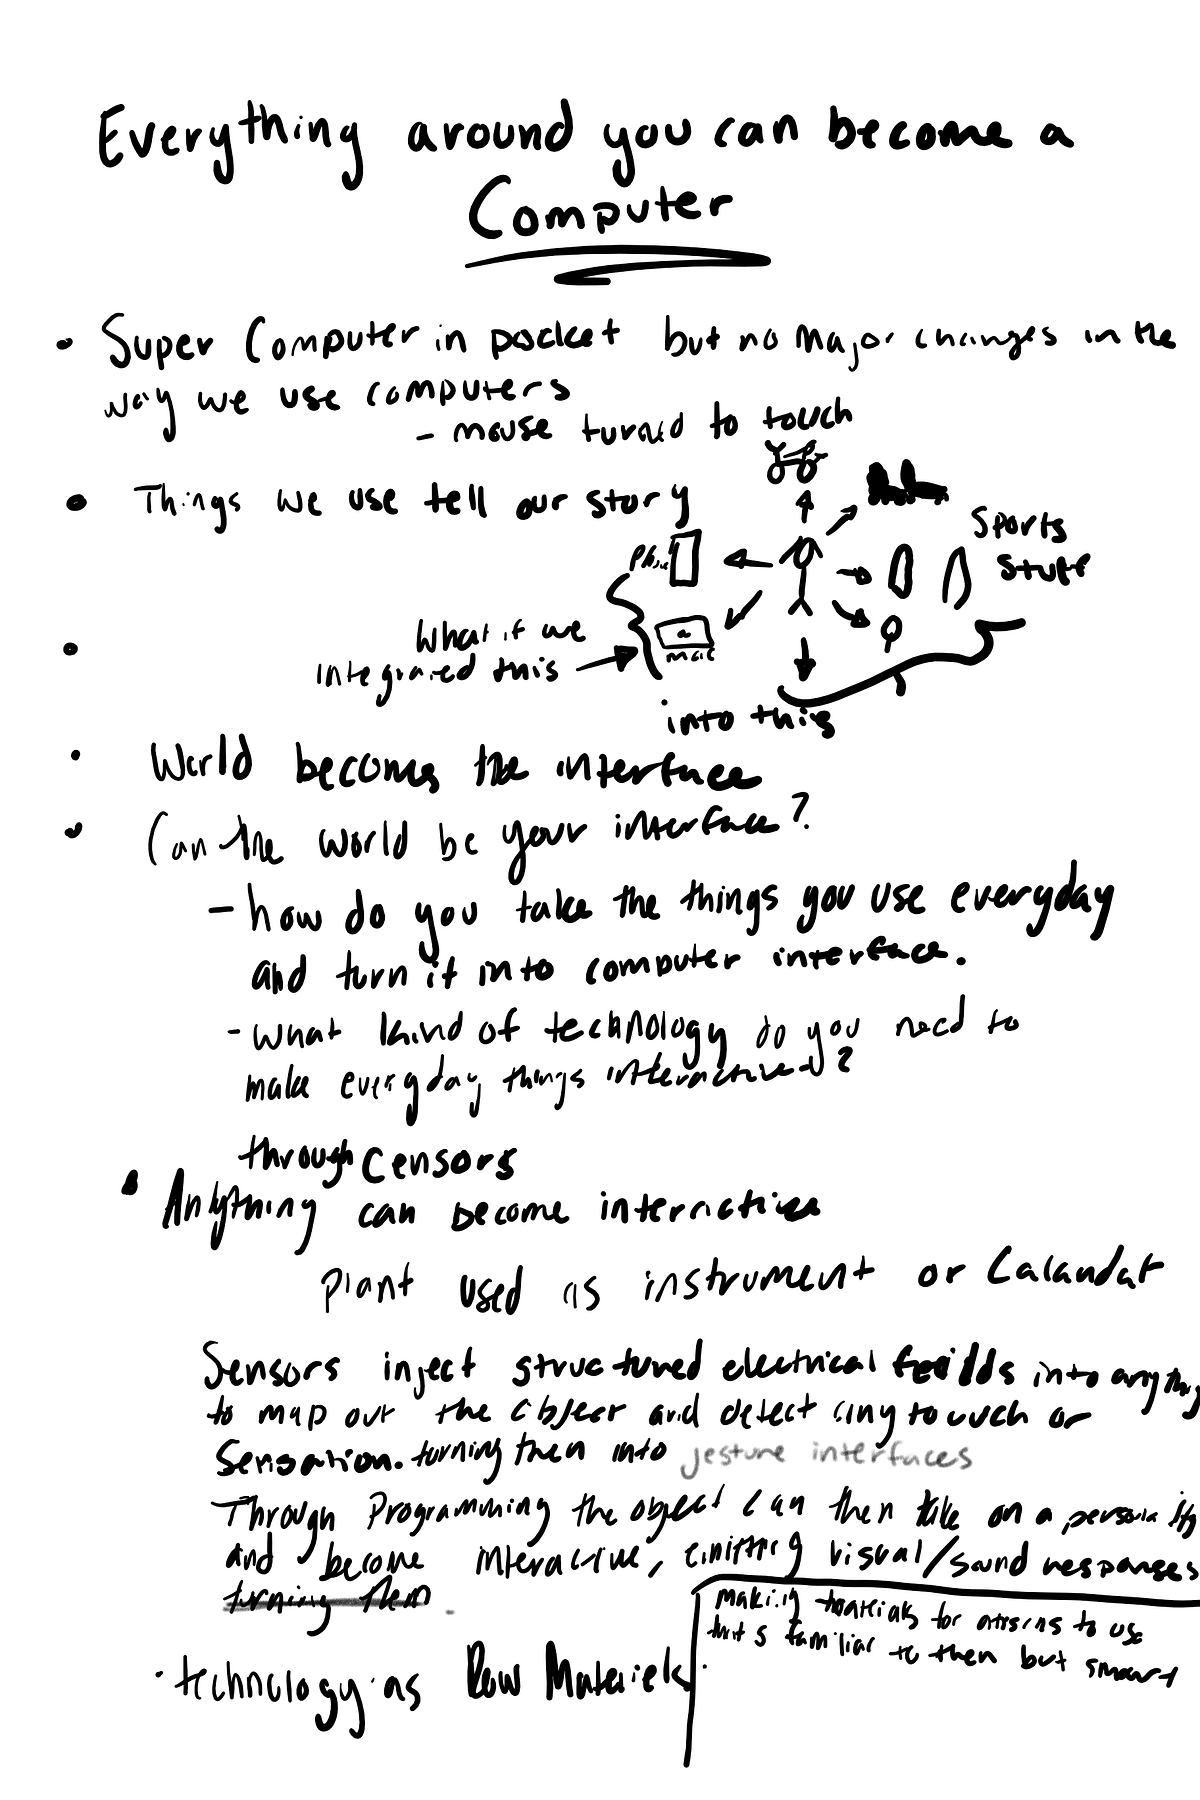 Everything around you can become a
Computer
• Super Computer in pocket but no major changes in the
way we use computers
- mouse turned to touch
• Things we use tell our story
Sports
stuff
Phone
mac
• What if we
integrated this
into this
• World becomes the interface
• Can the world be your interface?
- how do you take the things you use everyday
and turn it into computer interface.
- what kind of technology do you need to
make everyday things interactive?
through censors
• Anything can become
Plant used as instrument or
Sensors inject structured electrical into anything
to map out the object and detect any touch or
Sensation. turning then into jesture interfaces
Through Programming the object can then take on a personality
and become interactive, visual/sound responses
turning them
making for to use
that's familiar to then but smart
• technology as Raw Materials